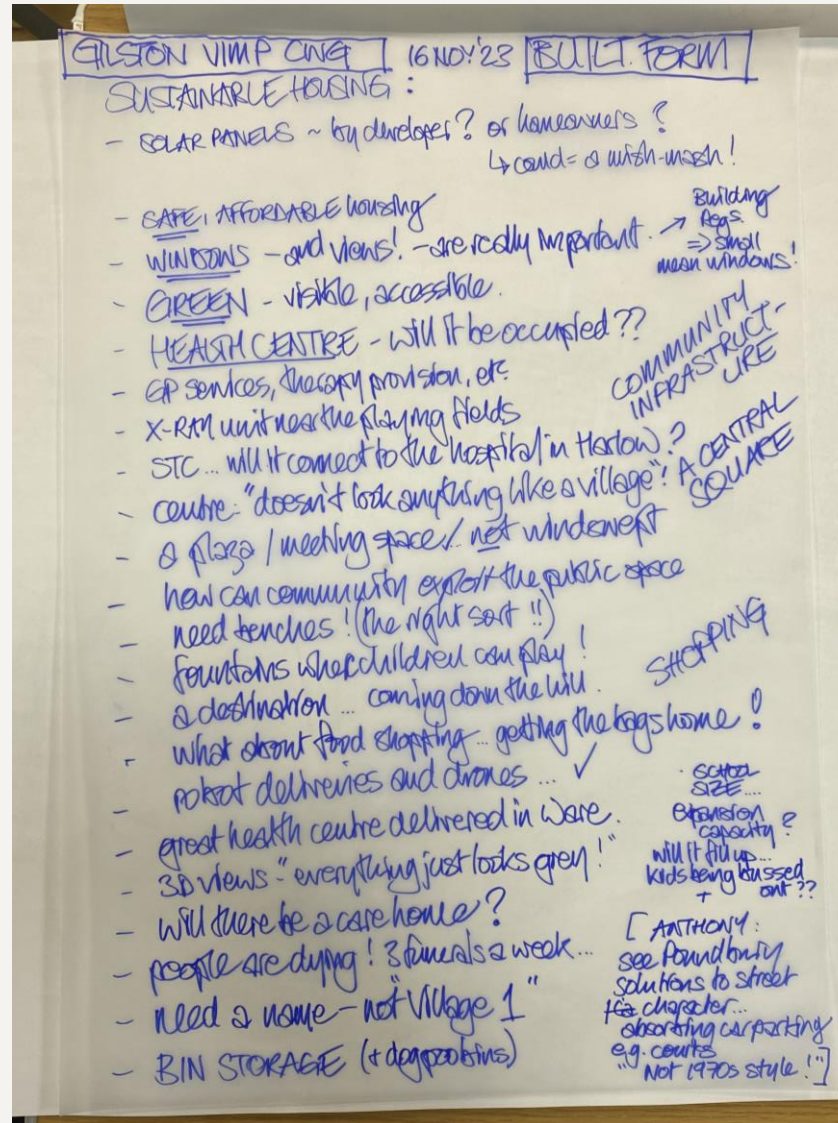 GILSTON VIMP CWG 16 NOV '23 BUILT FORM
SUSTAINABLE HOUSING :
- SOLAR PANELS ~ by developer? or homeowners ?
↳ could = a mish-mash !
- SAFE, AFFORDABLE housing
- WINDOWS - and views! - are really important. → Building
Regs.
⇒ small
mean windows!
- GREEN - visible, accessible.
- HEALTH CENTRE - will it be occupied??
COMMUNITY
INFRASTRUCT-
URE
- GP services, therapy provision, etc
- X-RAY unit near the playing fields
- STC ... will it connect to the hospital in Harlow?
- centre: "doesn't look anything like a village"!
A CENTRAL
SQUARE
- a plaza / meeting space/ not windswept
- how can community exploit the public space
- need benches ! (the right sort !!)
- fountains where children can play !
- a destination ... coming down the hill.
SHOPPING
- what about food shopping ... getting the bags home !
- robot deliveries and drones ... ✓
- great health centre delivered in Ware.
- 3D views - "everything just looks grey !"
- will there be a care home ?
· SCHOOL
SIZE ....
expansion
capacity ?
will it fill up ...
kids being bussed
+ out ??
- people are dying ! 3 funerals a week ...
- need a name - not "Village 1"
- BIN STORAGE (+ dog poo bins)
[ ANTHONY :
see Poundbury
solutions to street
character ...
absorbing car parking
e.g. courts
"Not 1970s style !"]